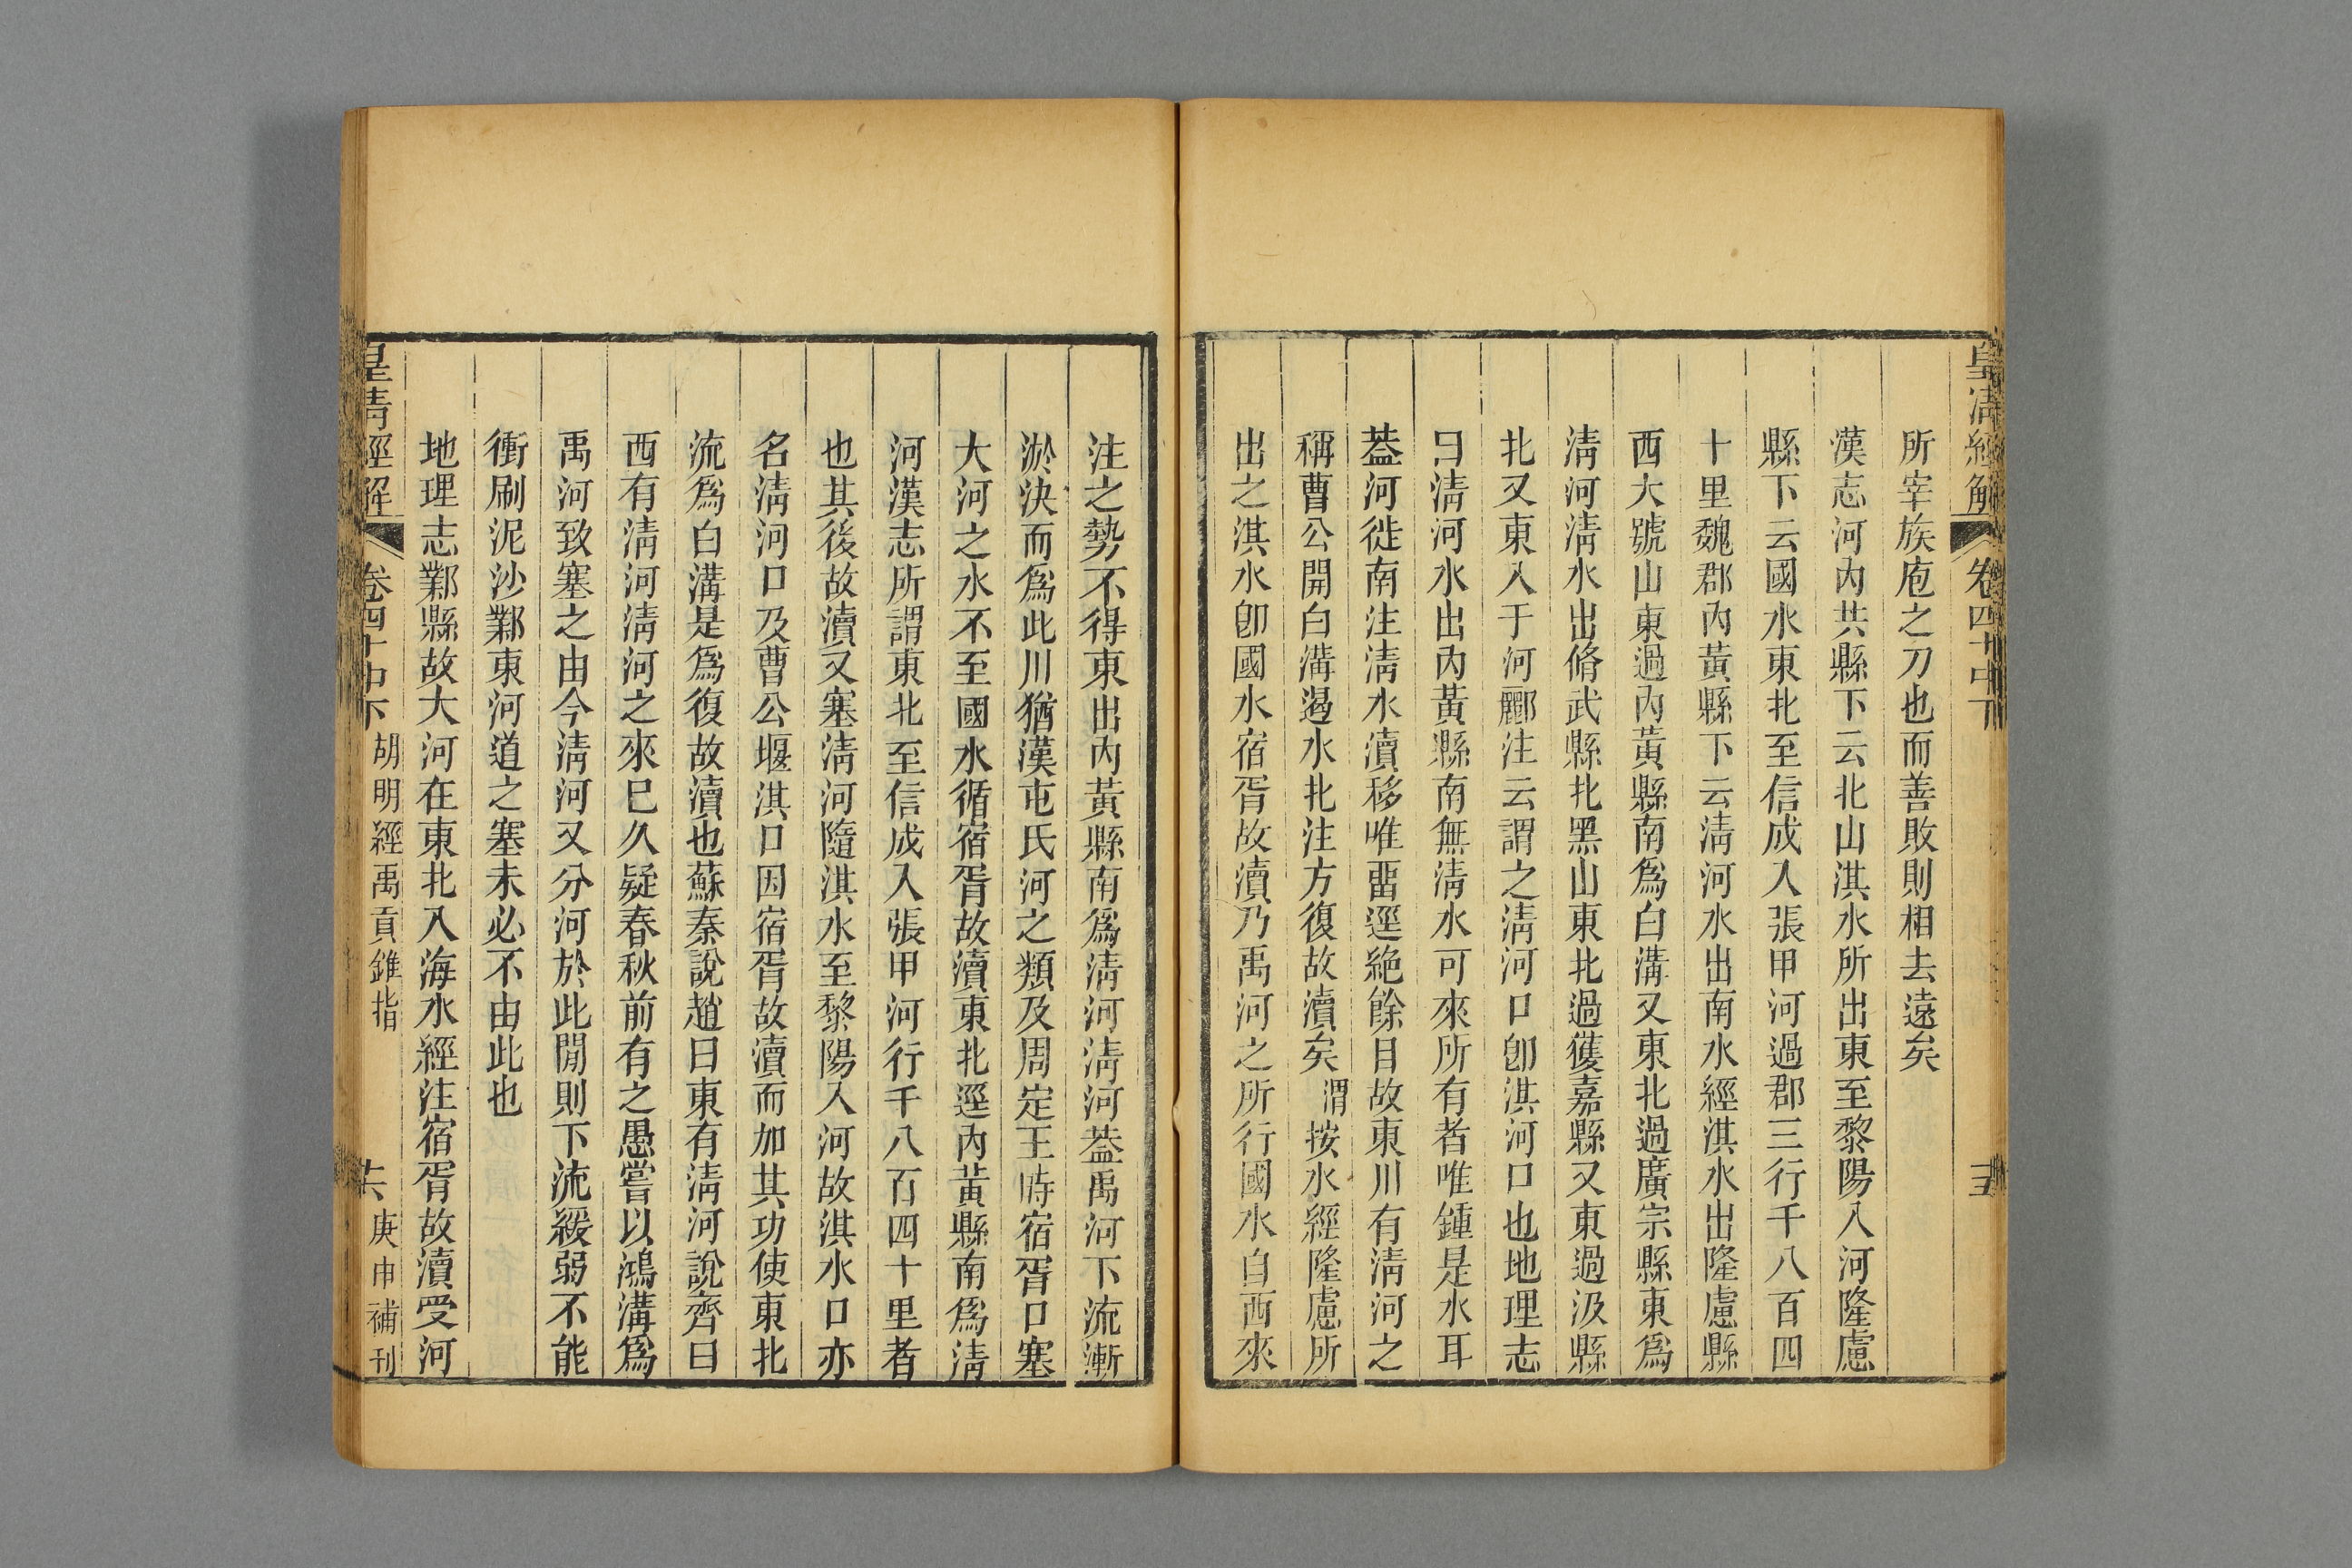 皇清經解 卷四十中下 五
所宰族庖之刀也而善敗則相去遠矣
漢志河內共縣下云北山淇水所出東至黎陽入河隆慮
縣下云國水東北至信成入張甲河過郡三行千八百四
十里魏郡內黃縣下云清河水出南水經淇水出隆慮縣
西大號山東過內黃縣南爲白溝又東北過廣宗縣東爲
清河清水出脩武縣北黑山東北過獲嘉縣又東過汲縣
北又東入于河酈注云謂之清河口卽淇河口也地理志
曰清河水出內黃縣南無清水可來所有者唯鍾是水耳
葢河徙南注清水瀆移唯畱逕絶餘目故東川有清河之
稱曹公開白溝遏水北注方復故瀆矣渭按水經隆慮所
出之淇水卽國水宿胥故瀆乃禹河之所行國水自西來
注之勢不得東出內黃縣南爲清河清河葢禹河下流漸
淤決而爲此川猶漢屯氏河之類及周定王時宿胥口塞
大河之水不至國水循宿胥故瀆東北逕內黃縣南爲清
河漢志所謂東北至信成入張甲河行千八百四十里者
也其後故瀆又塞清河隨淇水至黎陽入河故淇水口亦
名清河口及曹公堰淇口因宿胥故瀆而加其功使東北
流爲白溝是爲復故瀆也蘇秦說趙曰東有清河說齊曰
西有清河清河之來巳久疑春秋前有之愚嘗以鴻溝爲
禹河致塞之由今清河又分河於此閒則下流緩弱不能
衝刷泥沙鄴東河道之塞未必不由此也
地理志鄴縣故大河在東北入海水經注宿胥故瀆受河
皇清經解 卷四十中下 胡明經禹貢錐指 六 庚申補刊